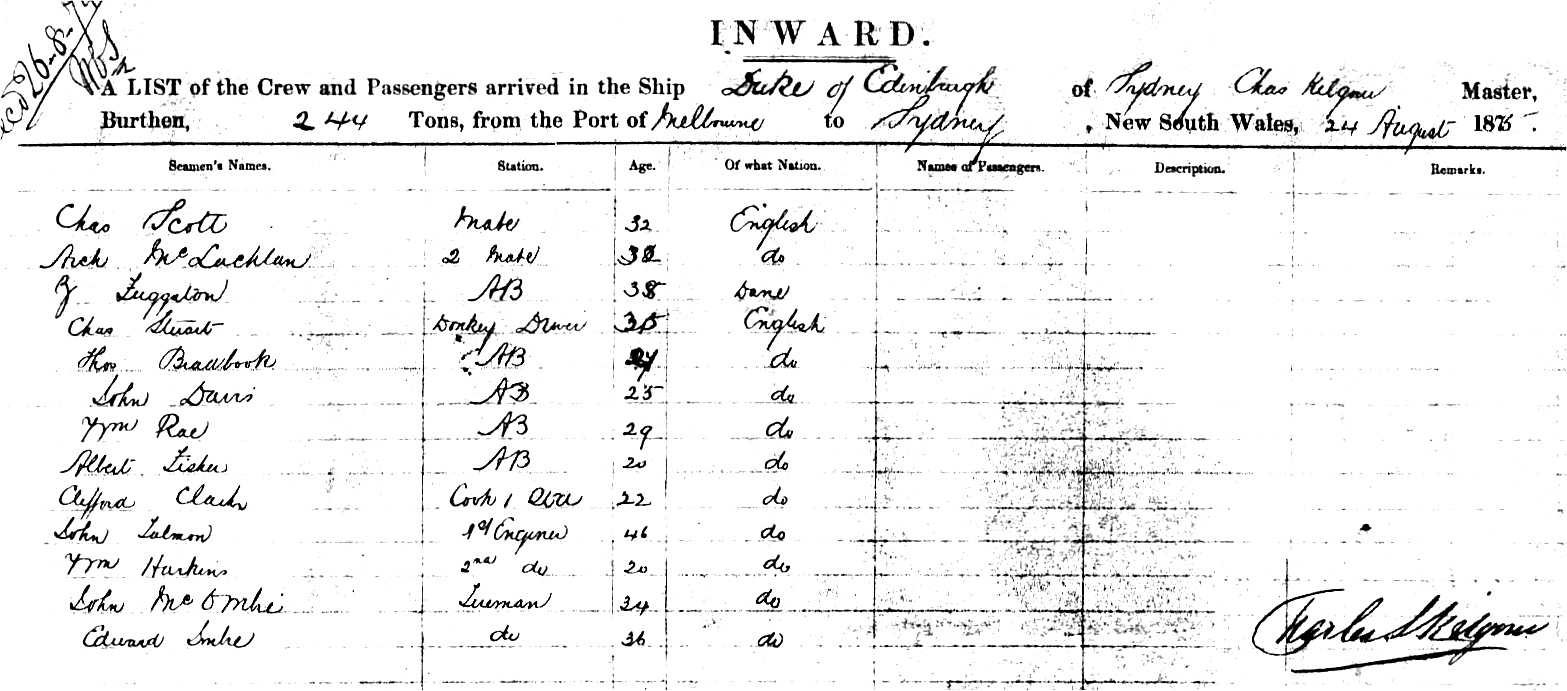 INWARD.
26-8-
A LIST of the Crew and Passengers arrived in the Ship Duke of Edinburgh of Sydney Chas Kilgour Master,
Burthen, 244 Tons, from the Port of Melbourne to Sydney, New South Wales, 24 August 1875.
Seamen's Names. Station. Age. Of what Nation. Names of Passengers. Description. Remarks.
Chas Scott Mate 32 English
Arch McLachlan 2 Mate do
AB 38 Dane
Chas Stuart Donkey Driver 35 English
Thos Bradbook AB do
John Davis AB 25 do
Wm Rae AB 29 do
Albert Fisher AB 20 do
Clifford Clark Cook 22 do
John 1st Engineer 46 do
Wm Harkins 2nd do 20 do
John Fireman 34 do
Edward do 36 do
Charles S Kilgour